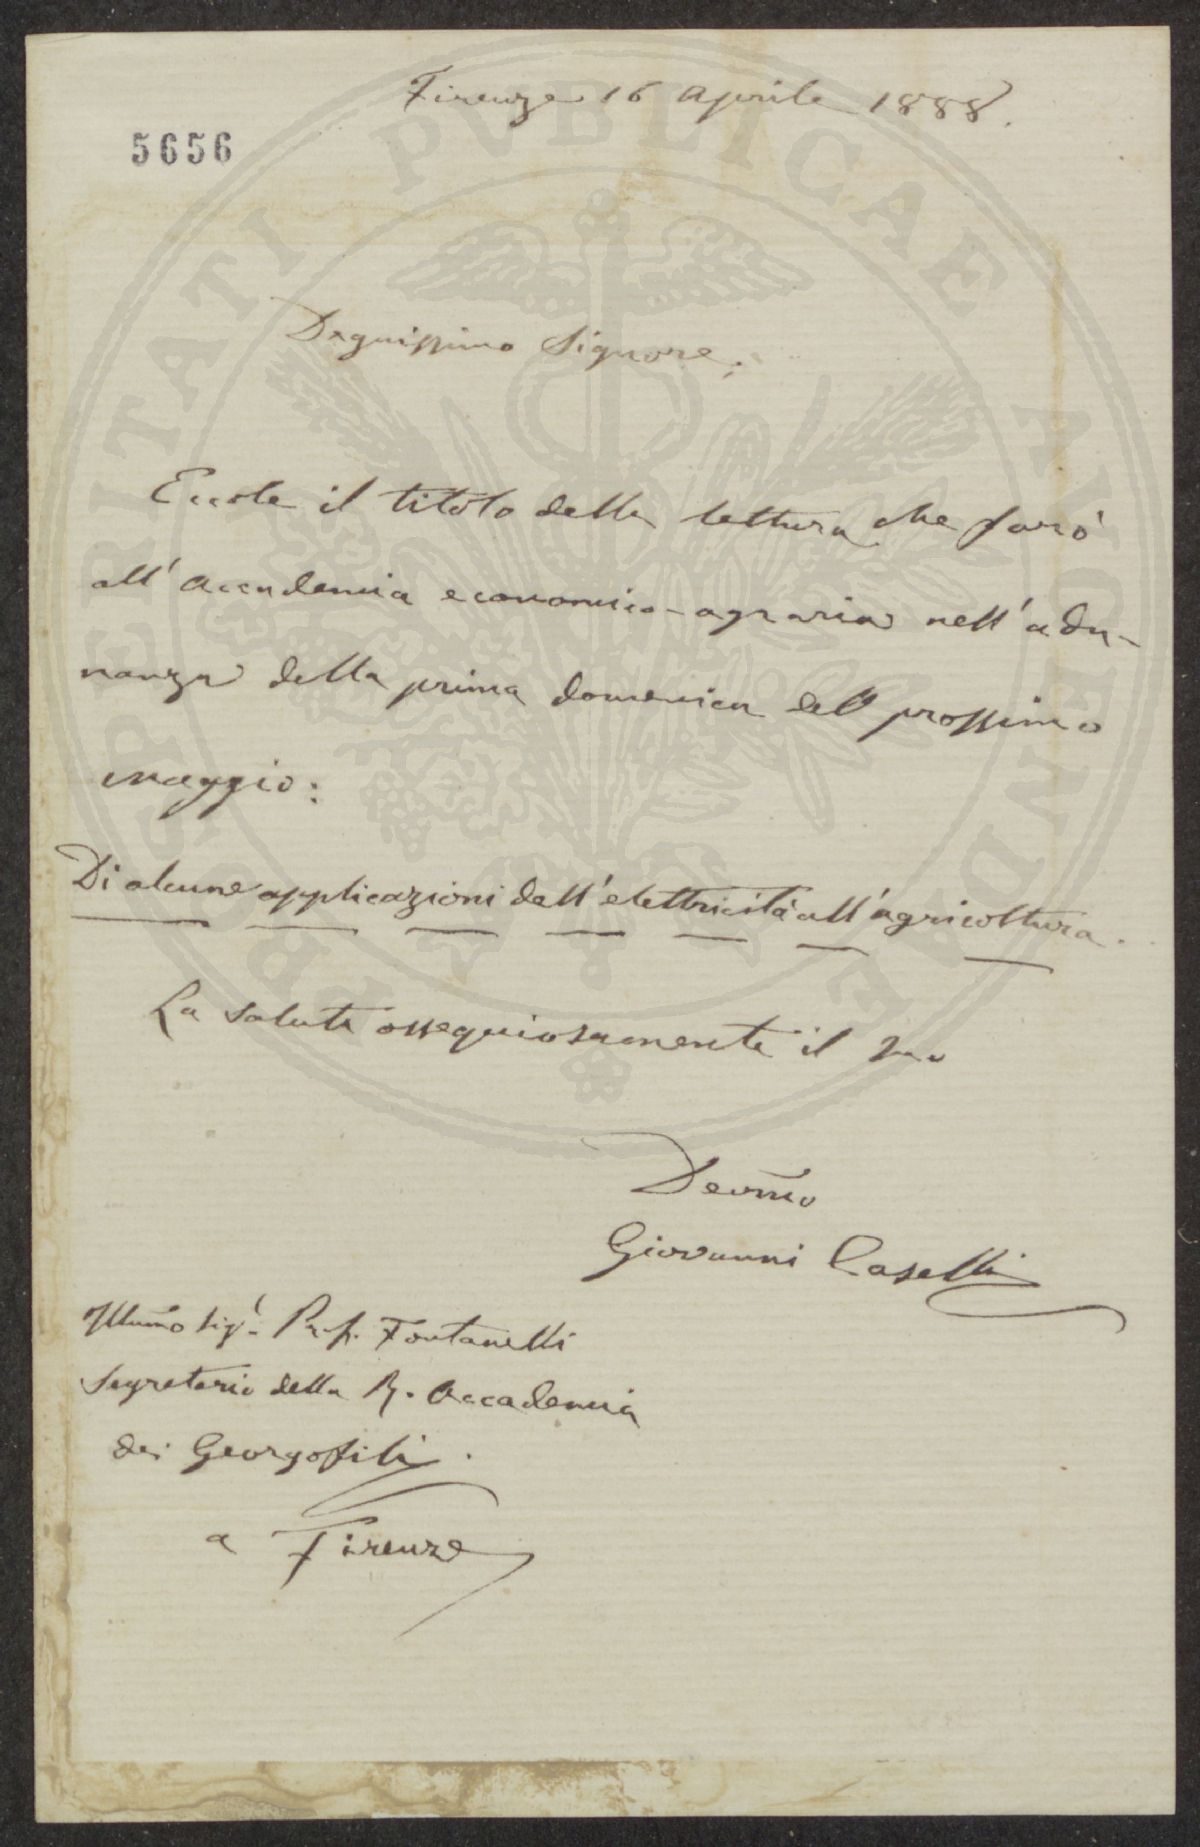 Firenze 16 Aprile 1888.
5656
Degnissimo Signore,
Eccole il titolo della lettura che farò
all'Accademia economico-agraria nell'adu-
nanza della prima domenica del prossimo
maggio:
Di alcune applicazioni dell'elettricità all'agricoltura.
La saluta ossequiosamente il suo
Devmo
Giovanni Caselli
Illumo Sigr. Prof. Fontanelli
Segretario della R. Accademia
dei Georgofili.
a Firenze
PROSPERITATI PVBLICAE AVGENDAE